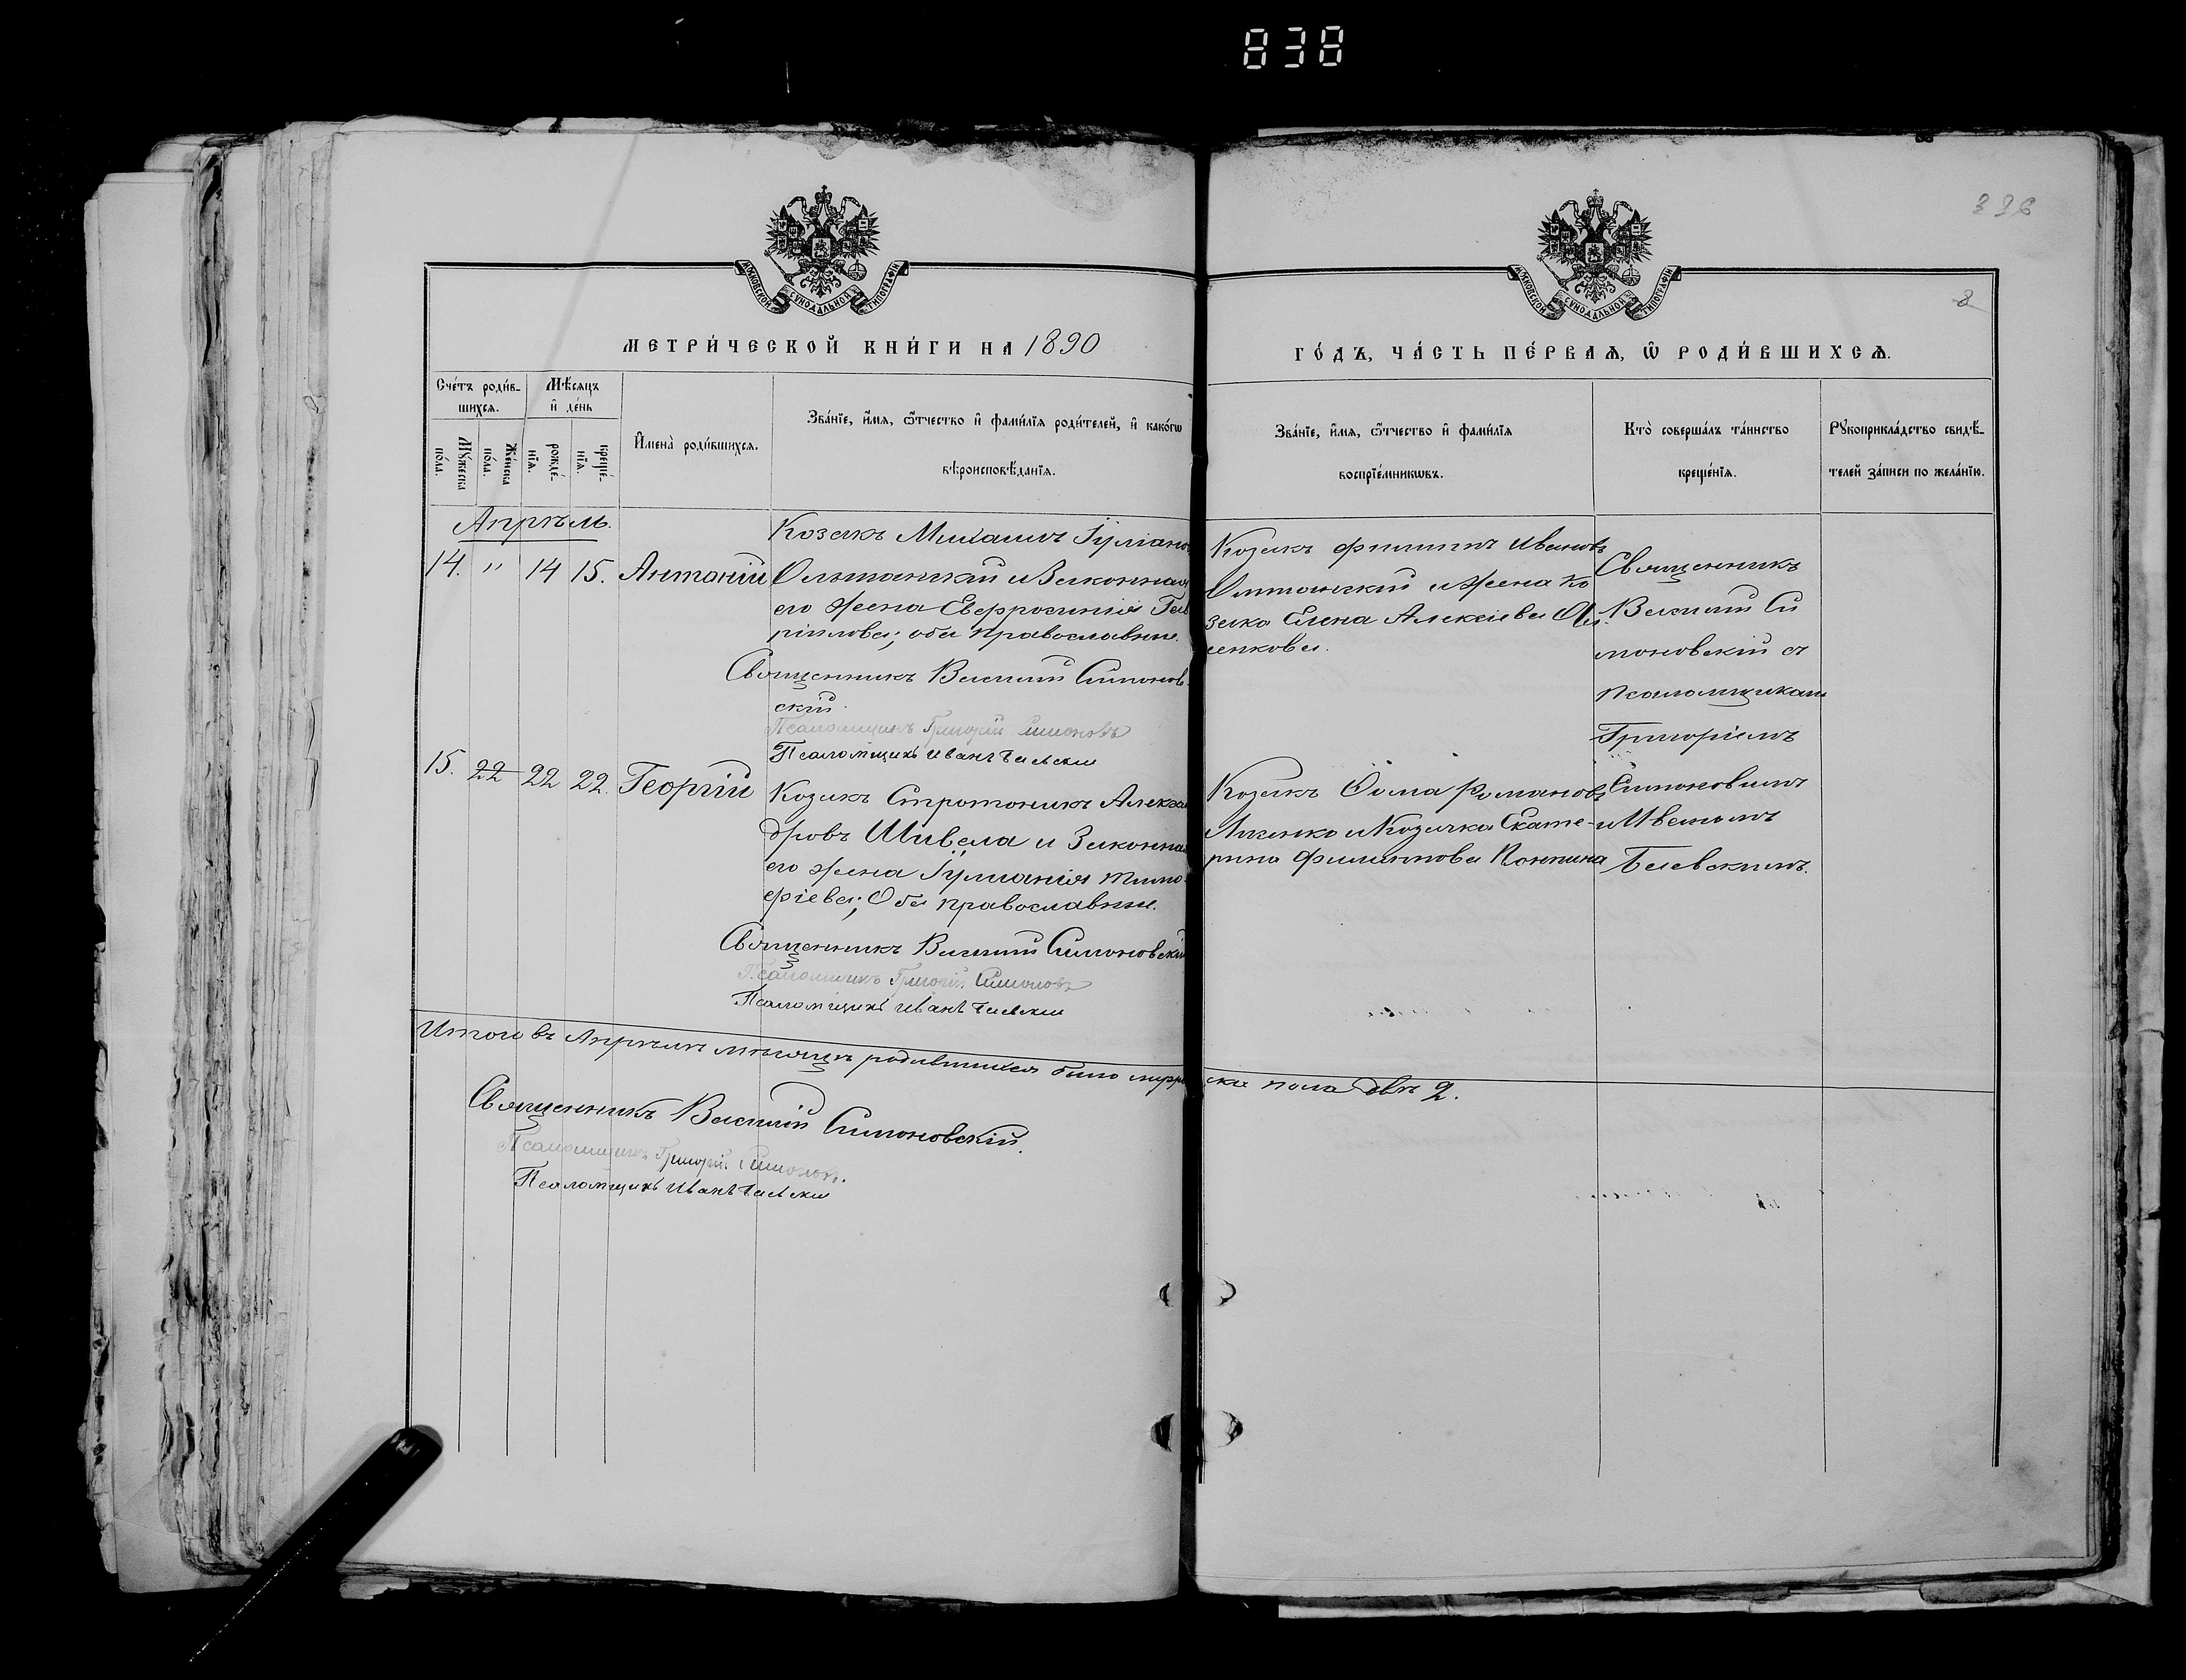 838
336
8
МОСКОВСКОЙ СѴНОДАЛЬНОЙ ТИПОГРАФІИ
МОСКОВСКОЙ СѴНОДАЛЬНОЙ ТИПОГРАФІИ
МЕТРИ́ЧЕСКОЙ КНИ́ГИ НА 1890
ГО́ДЪ, ЧА́СТЬ ПЕ́РВАѦ, Ѽ РОДИ́ВШИХСѦ.
Сче́тъ роди́в-
шихсѧ.
Мѣ́сяцъ
и҆ де́нь
Мꙋ́жеска
по́ла.
Же́нска
по́ла.
рожде́-
нїѧ.
креще́-
нїѧ.
И҆мена̀ роди́вшихсѧ.
Зва́нїе, и҆́мѧ, ѻ҆́тчество и҆ фами́лїѧ роди́телей, и҆ како́гѡ
вѣроисповѣ́данїѧ.
Зва́нїе, и҆́мѧ, ѻ҆́тчество и҆ фами́лїѧ
воспрїе́мникѡвъ.
Кто̀ соверша́лъ та́инство
креще́нїѧ.
Рꙋкоприкла́дство свидѣ́-
телей за́писи по жела́нїю.
Апрѣль.
14. " 14 15. Антоній
Козакъ Михаилъ Іуліанов
и Законная
его жена Евфросинія Гав
ріилова; оба православные.
Священникъ Василій Симонов
скій.
Псаломщикъ Григорій Симоновъ
Псаломщикъ Иванъ
Козакъ Филиппъ Ивановъ
и жена ко
зака Елена Алексіева
енкова.
Священникъ
Василій Си
моновскій съ
псаломщикам
Григоріемъ
Симоновымъ
и Иваномъ
15. 22 22 22. Георгій
Козакъ Стратоникъ Алекса
дровъ Шивела и Законная
его жена Іуліанія Тимо
фіева; Оба православные.
Священникъ Василій Симоновскій
Псаломщикъ Григорій Симоновъ
Псаломщикъ Иванъ
Козакъ Ѳома Романовъ
и Козачка Екате-
рина Филиппова
Итого въ Апрѣлѣ мѣсяцѣ родившихся было муже
ска пола два 2.
Священникъ Василій Симоновскій.
Псаломщикъ Григорій Симоновъ.
Псаломщикъ Иванъ